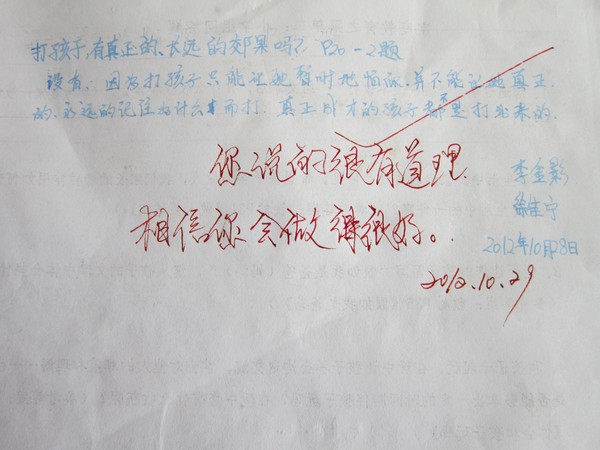 打孩子,有真正的、长远的效果吗? P20-2题
没有,因为打孩子只能让她暂时地怕你,并不能让她真正
的、永远的记住为什么事而打,真正成才的孩子都不是打出来的.
您说的很有道理.
相信你会做得很好。
李金影
徐佳宁
2012年10月28日
2012.10.29